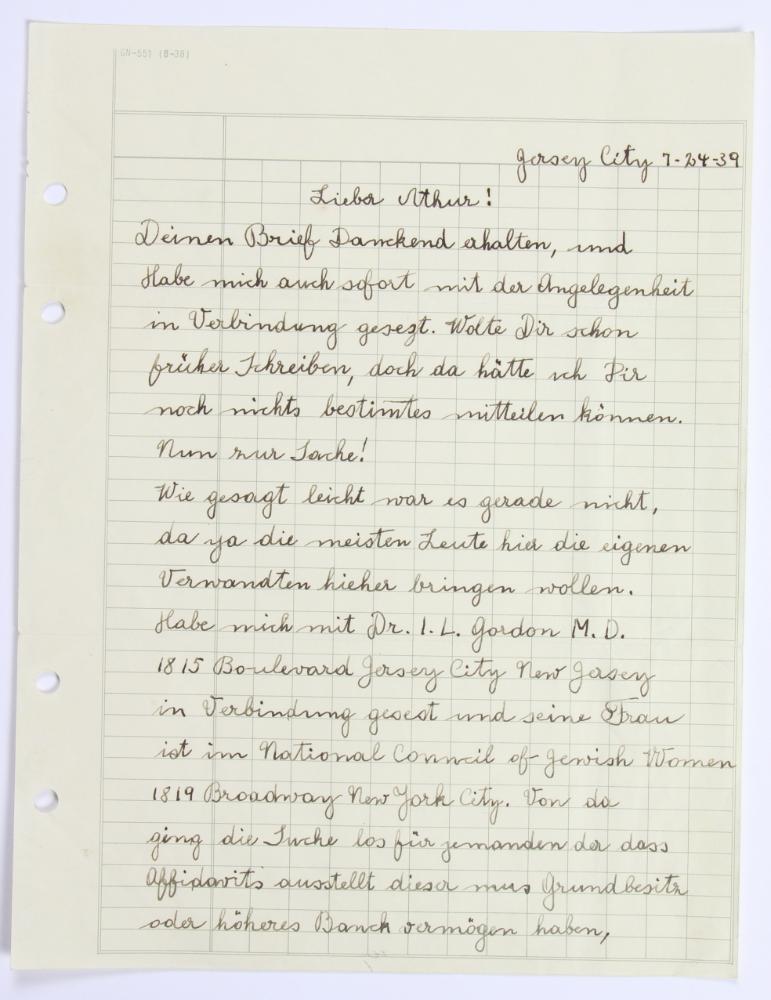 GN-551 (8-38)
Jersey City 7-24-39
Lieber Athur!
Deinen Brief Danckend erhalten, und
Habe mich auch sofort mit der Angelegenheit
in Verbindung gesezt. Wolte Dir schon
früher Schreiben, doch da hätte ich Dir
noch nichts bestimtes mitteilen können.
Nun zur Sache!
Wie gesagt leicht war es gerade nicht,
da ya die meisten Leute hier die eigenen
Verwandten hieher bringen wollen.
Habe mich mit Dr. I. L. Gordon M. D.
1815 Boulevard Jersey City New Jersey
in Verbindung gesest und seine Frau
ist im National Council of Jewish Women
1819 Broadway New York City. Von da
ging die Suche los für jemanden der dass
Affidavits ausstellt dieser mus Grundbesitz
oder höheres Banck vermögen haben,